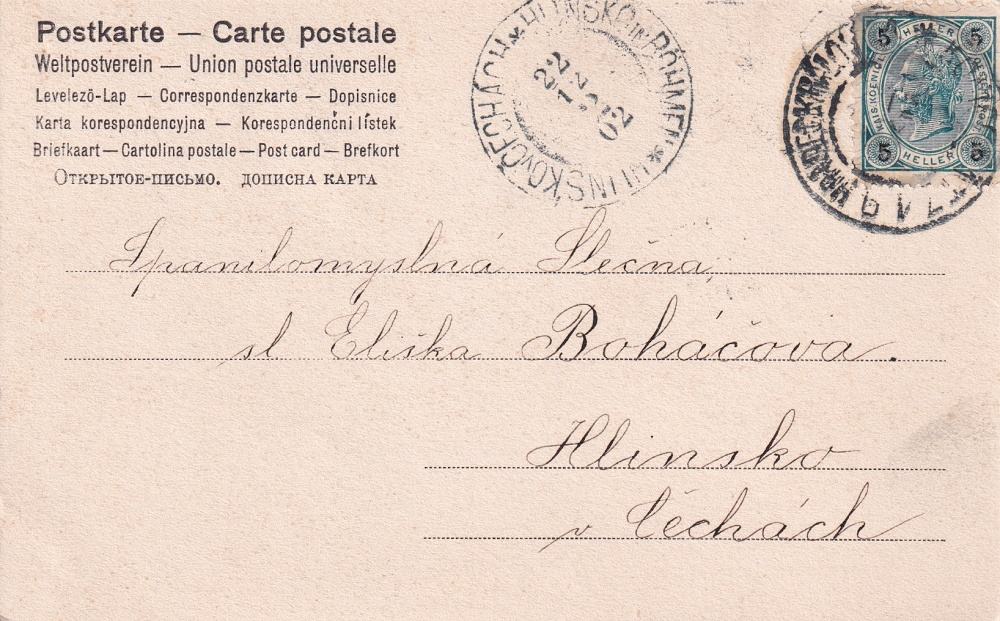 Postkarte — Carte postale
Weltpostverein — Union postale universelle
Levelező-Lap — Correspondenzkarte — Dopisnice
Karta korespondencyjna — Korespondenčni lístek
Briefkaart — Cartolina postale — Post card — Brefkort
Открытое-письмо. дописна карта
HLINSKO IN BÖHMEN * HLINSKO V ČECHÁCH *
22
2
02
5 HELLER 5
5 HELLER 5
Spanilomyslná Slečna,
sl Eliška Boháčova.
Hlinsko
v Čechách